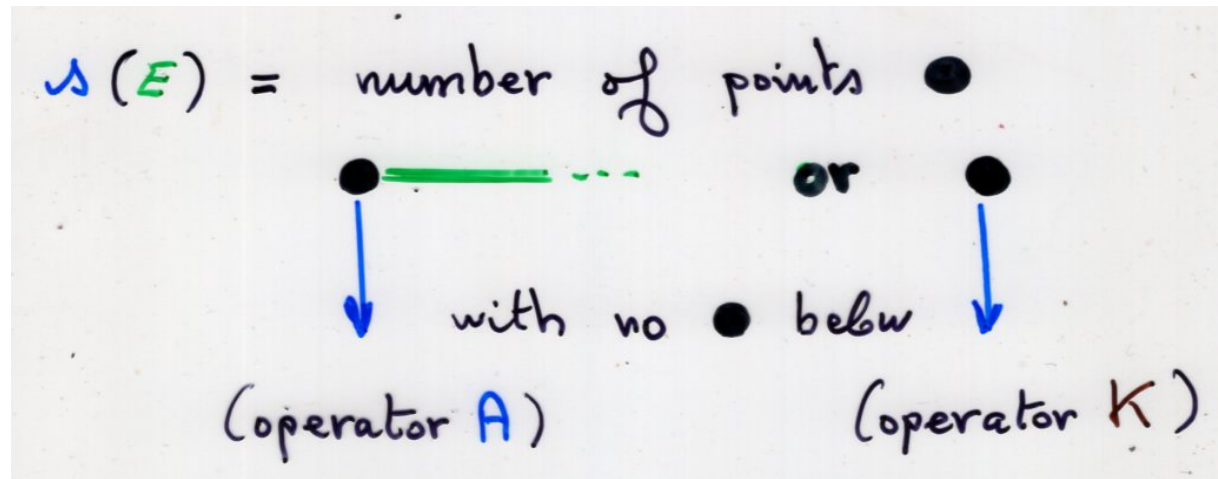 s (E) = number of points
or
with no below
(operator A) (operator K)